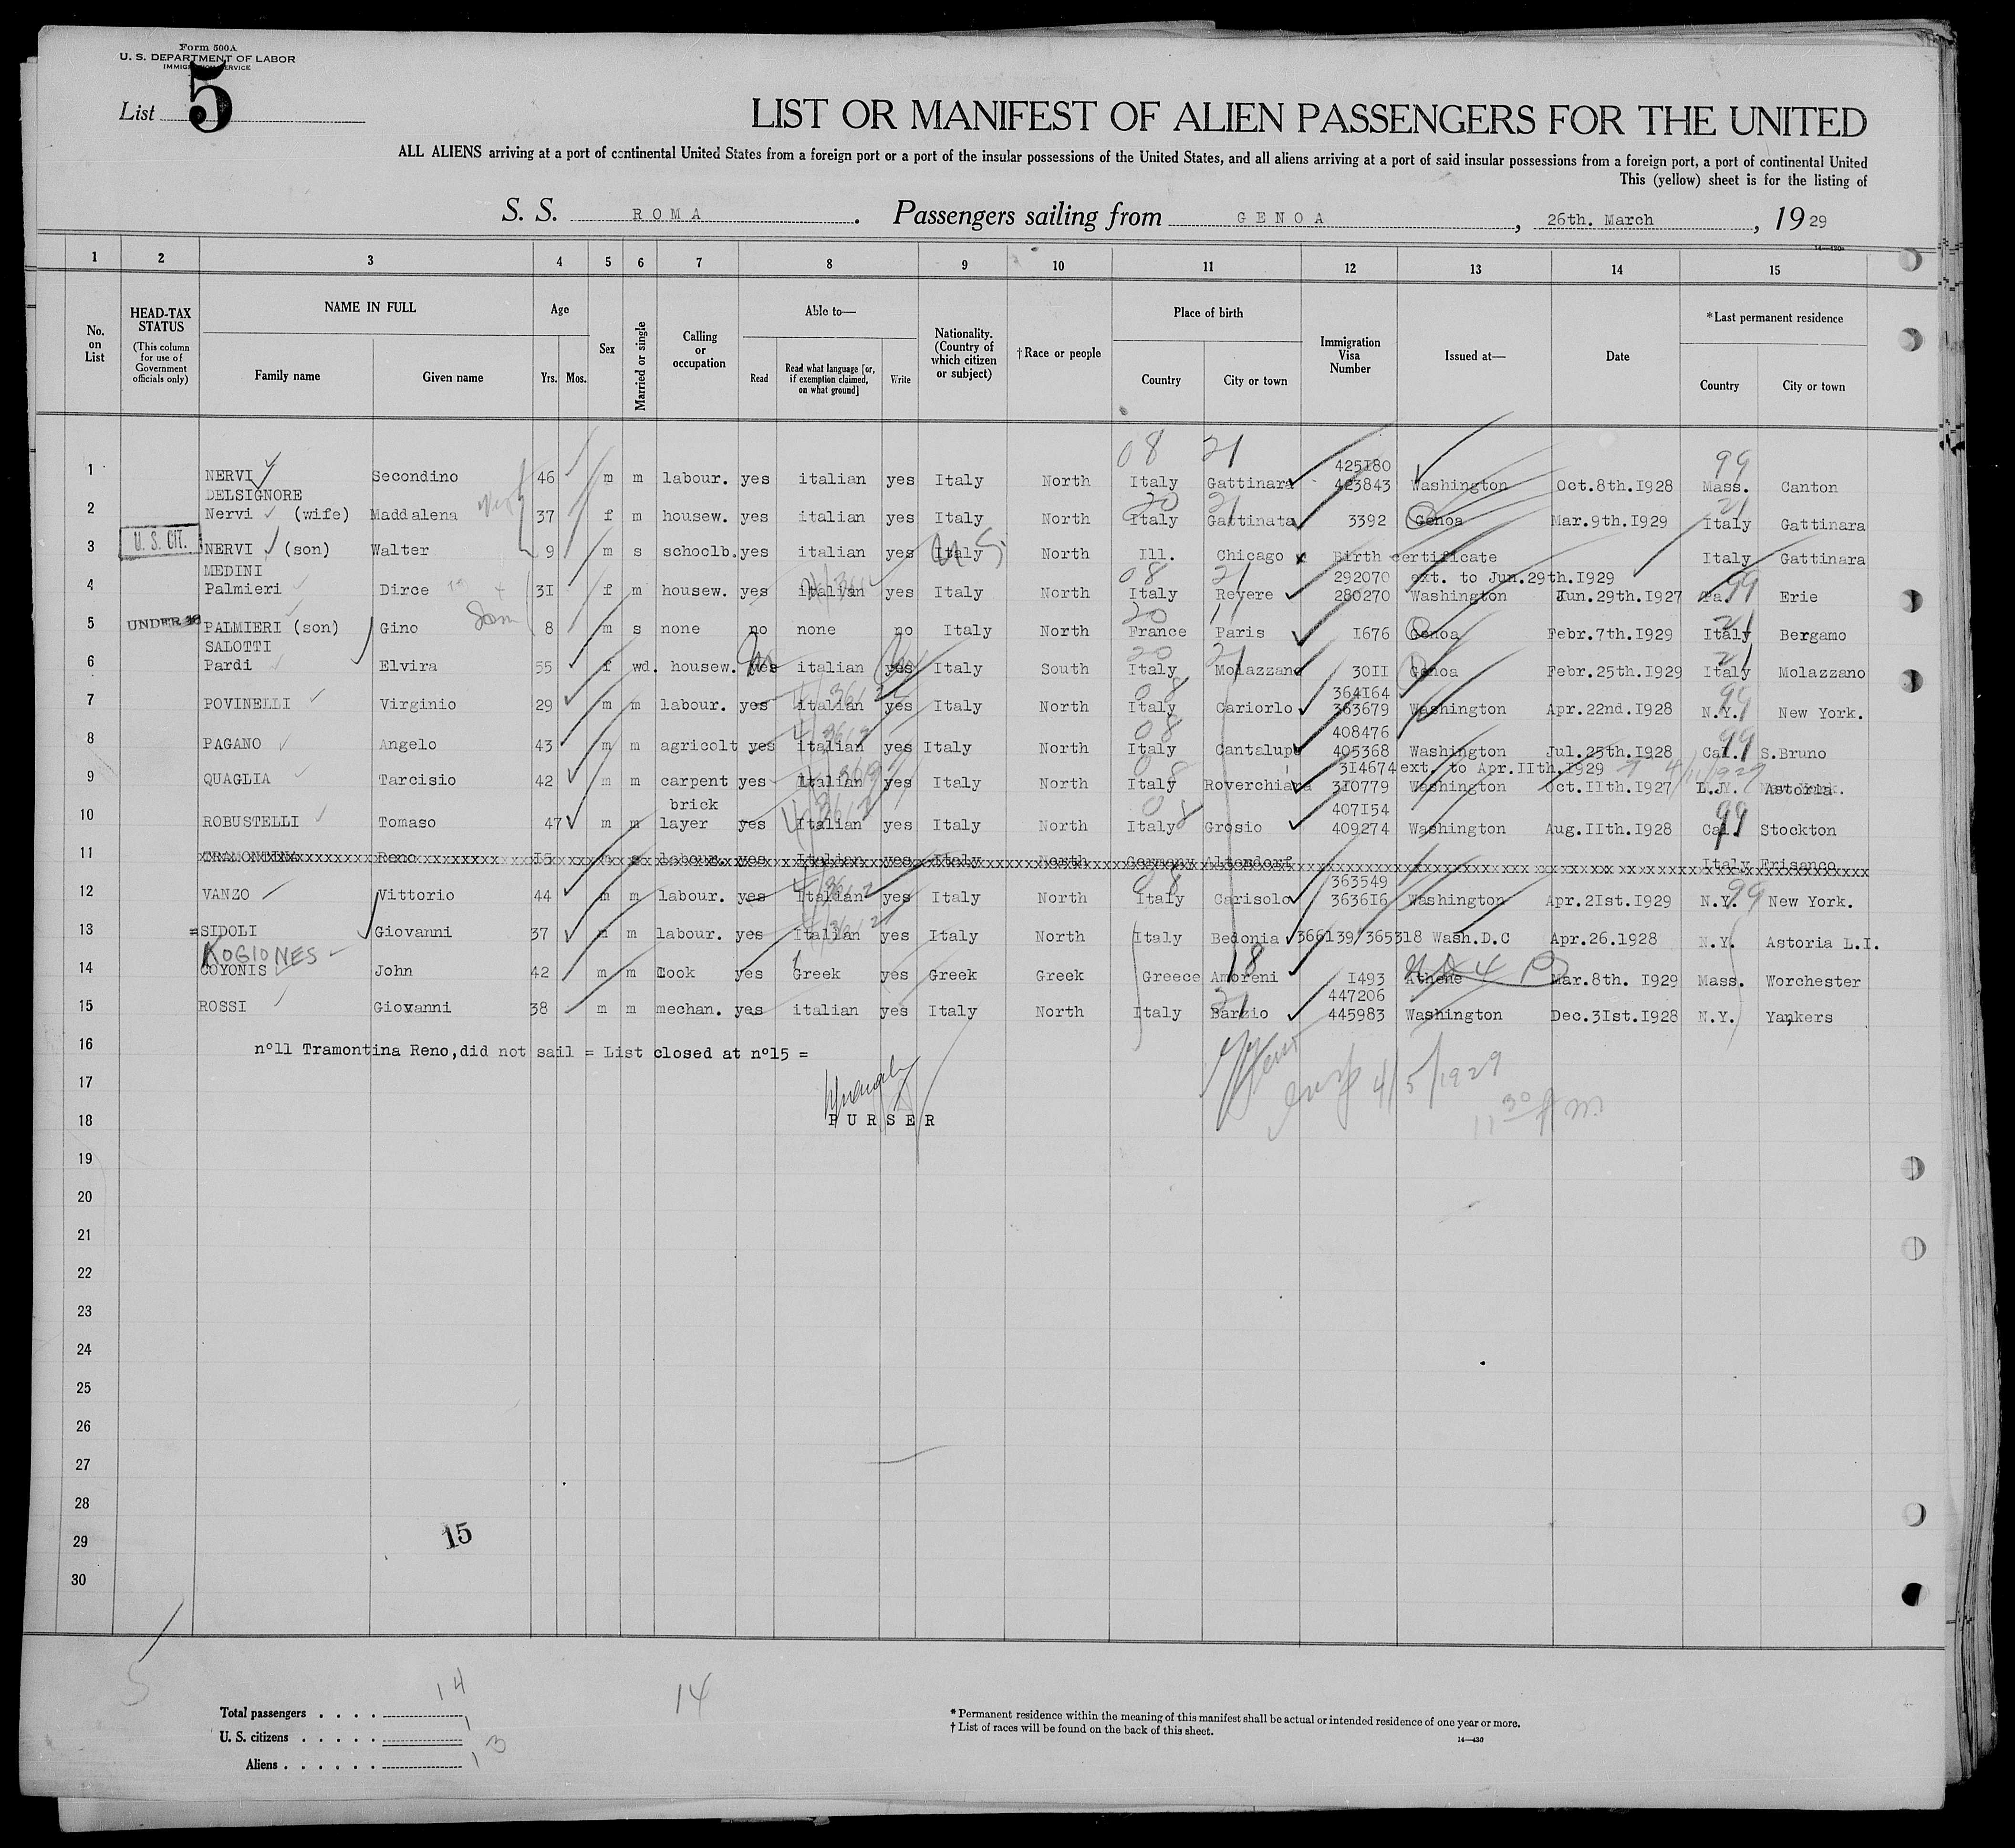 Form 500A
U. S. DEPARTMENT OF LABOR
IMMIGRATION SERVICE
List 5
LIST OR MANIFEST OF ALIEN PASSENGERS FOR THE UNITED
ALL ALIENS arriving at a port of continental United States from a foreign port or a port of the insular possessions of the United States, and all aliens arriving at a port of said insular possessions from a foreign port, a port of continental United
This (yellow) sheet is for the listing of
S. S. ROMA. Passengers sailing from GENOA, 26th. March, 1929
14—430
1 2 3 4 5 6 7 8 9 10 11 12 13 14 15
No. on List
HEAD-TAX STATUS (This column for use of Government officials only)
NAME IN FULL Family name Given name
Age Yrs. Mos.
Sex
Married or single
Calling or occupation
Able to— Read Read what language [or, if exemption claimed, on what ground] Write
Nationality. (Country of which citizen or subject)
†Race or people
Place of birth Country City or town
Immigration Visa Number
Issued at—
Date
*Last permanent residence Country City or town
08 21 425180 99
1 NERVI Secondino 46 m m labour. yes italian yes Italy North Italy Gattinara 423843 Washington Oct.8th.1928 Mass. Canton
DELSIGNORE 20 21 21
2 Nervi (wife) Maddalena 37 f m housew. yes italian yes Italy North Italy Gattinata 3392 Genoa Mar.9th.1929 Italy Gattinara
3 U. S. CIT. NERVI (son) Walter 9 m s schoolb. yes italian yes Italy North Ill. Chicago x Birth certificate Italy Gattinara
MEDINI 08 21 292070 ext. to Jun.29th.1929
4 Palmieri Dirce 31 f m housew. yes italian yes Italy North Italy Revere 280270 Washington Jun.29th.1927 Pa. 99 Erie
5 UNDER 16 PALMIERI (son) Gino 8 m s none no none no Italy North France Paris 1676 Genoa Febr.7th.1929 Italy Bergamo
SALOTTI 20 21 21
6 Pardi Elvira 55 f wd. housew. yes italian yes Italy South Italy Molazzano 3011 Genoa Febr.25th.1929 Italy Molazzano
08 364164 99
7 POVINELLI Virginio 29 m m labour. yes italian yes Italy North Italy Cariorlo 363679 Washington Apr.22nd.1928 N.Y. New York.
08 408476 99
8 PAGANO Angelo 43 m m agricolt yes italian yes Italy North Italy Cantalupo 405368 Washington Jul.25th.1928 Cal. S.Bruno
314674 ext. to Apr.11th.1929
9 QUAGLIA Tarcisio 42 m m carpent yes Italian yes Italy North Italy Roverchiara 310779 Washington Oct.11th.1927 Astoria.
brick 08 407154 99
10 ROBUSTELLI Tomaso 47 m m layer yes Italian yes Italy North Italy Grosio 409274 Washington Aug.11th.1928 Cal. Stockton
11 TRAMONTINA Reno 15 m s labour. yes Italian yes Italy North Germany Altendorf Italy Frisanco
08 363549 99
12 VANZO Vittorio 44 m m labour. yes Italian yes Italy North Italy Carisolo 363616 Washington Apr.21st.1929 N.Y. New York.
13 =SIDOLI Giovanni 37 m m labour. yes Italian yes Italy North Italy Bedonia 366139/365318 Wash.D.C Apr.26.1928 N.Y. Astoria L.I.
KOGIONES
14 COYONIS John 42 m m Cook yes Greek yes Greek Greek Greece Amoreni 1493 Athene Mar.8th. 1929 Mass. Worchester
21 447206
15 ROSSI Giovanni 38 m m mechan. yes italian yes Italy North Italy Barzio 445983 Washington Dec.31st.1928 N.Y. Yonkers
16 nº11 Tramontina Reno,did not sail = List closed at nº15 =
17 4/5/1929
18 PURSER 11 30 A m
19
20
21
22
23
24
25
26
27
28
29 15
30
5
Total passengers . . . . 14 14
U. S. citizens . . . . . 1
Aliens . . . . . . 13
* Permanent residence within the meaning of this manifest shall be actual or intended residence of one year or more.
† List of races will be found on the back of this sheet.
14—430